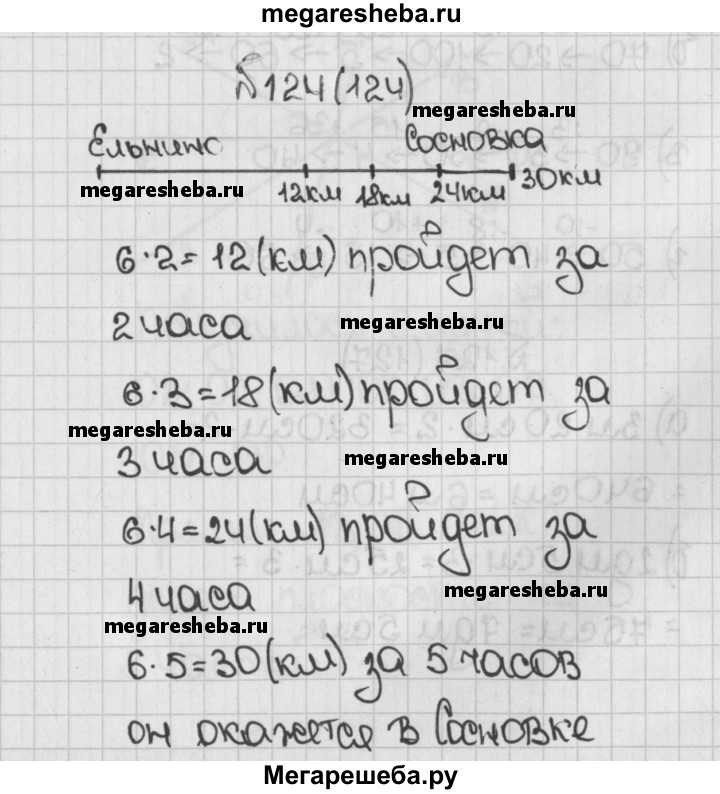 megaresheba.ru
№124(124)
megaresheba.ru
Ельнинс Сосновка
megaresheba.ru 12км 18км 24км 30км
6·2=12(км) пройдет за
2 часа megaresheba.ru
6·3=18(км) пройдет за
megaresheba.ru
3 часа megaresheba.ru
6·4=24(км) пройдет за
4 часа megaresheba.ru
megaresheba.ru
6·5=30(км) за 5 часов
он окажется в Сосновке
Мегарешеба.ру